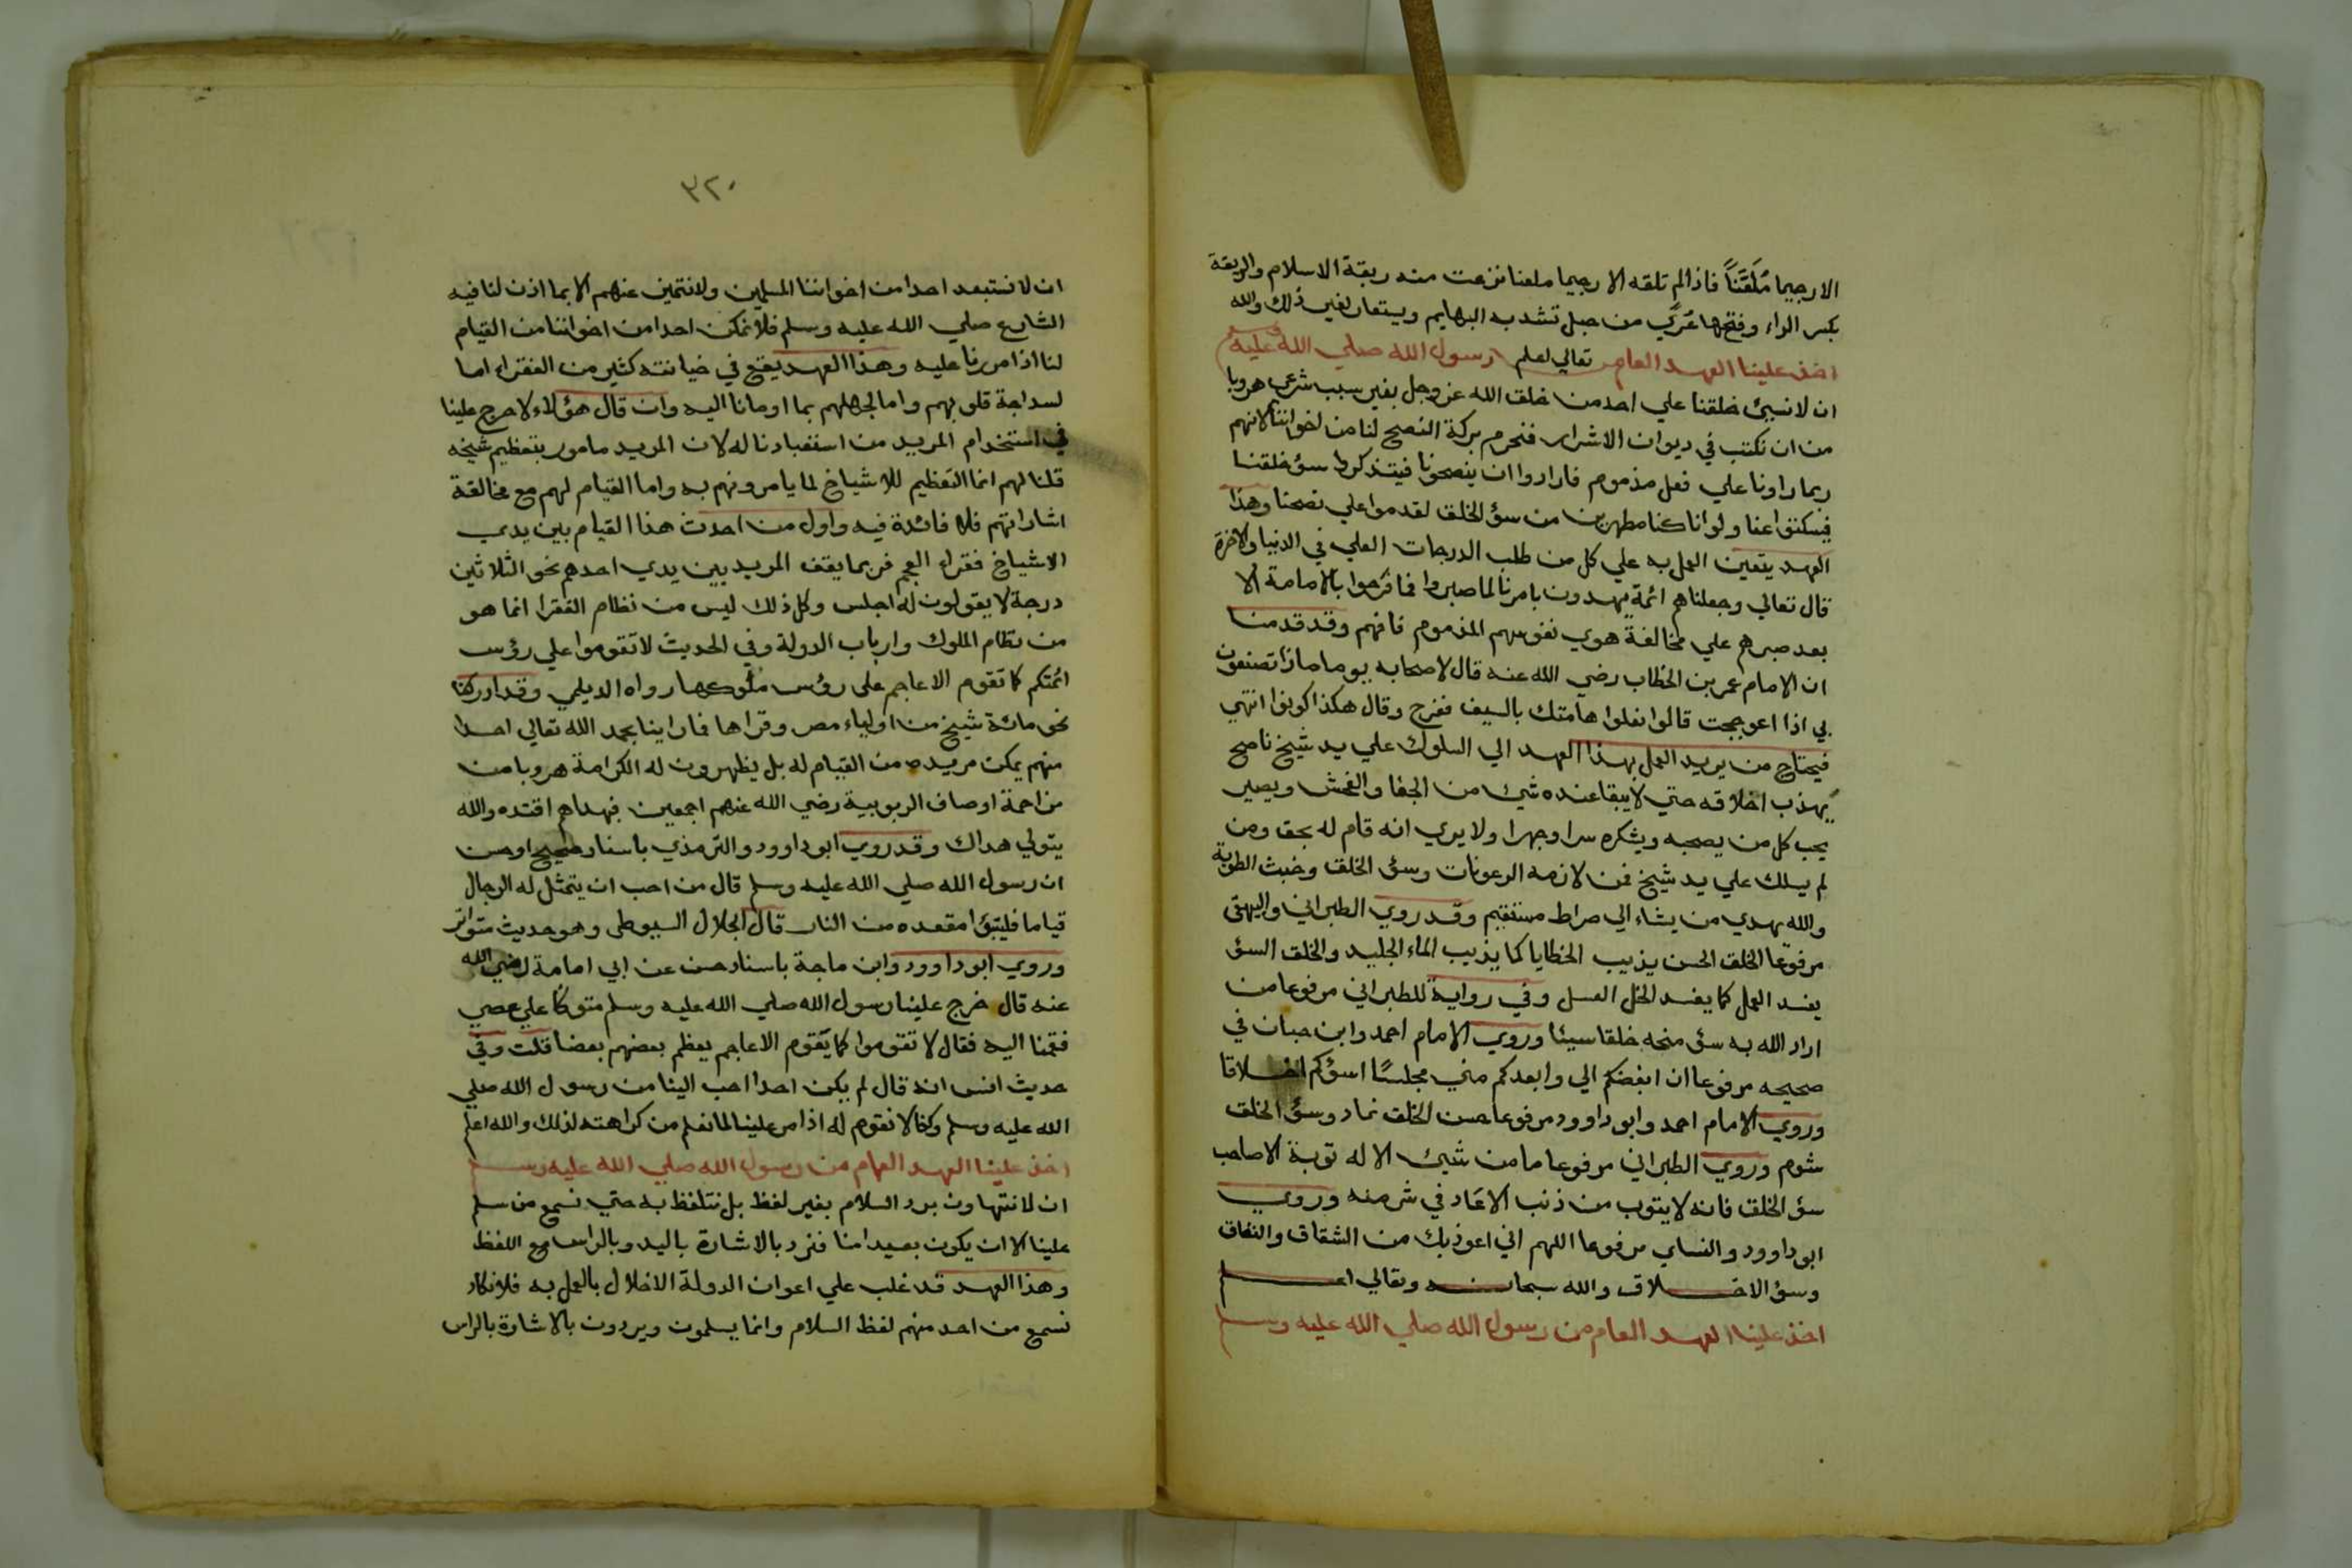 الا رجيما مُلَعَّنًا فاذا لم تلقه الا رجيما ملعنا نزعت منه ربقة الاسلام والربقة
بكسر الراء وفتحها عُرَى من حبل تشد به البهايم ويستعار لغير ذلك والله
تعالي اعلم
اخذ علينا العهد العام رسول الله صلي الله عليه
ان لا نسيئ خلقنا علي احد من خلق الله عز وجل بغير سبب شرعي هروبا
من ان نكتب في ديوان الاشرار فنحرم بركة النصح لنا من اخواننا لانهم
ربما راونا علي فعل مذموم فارادوا ان ينصحونا فيتذكروا سؤ خلقنا
فيسكتوا عنا ولو انا كنا مطهرين من سؤ الخلق لقدموا علي نصحنا وهذا
العهد يتعين العمل به علي كل من طلب الدرجات العلي في الدنيا والاخرة
قال تعالي وجعلناهم ائمة يهدون بامرنا لما صبروا فما فرحوا بالامامة الا
بعد صبرهم علي مخالفة هوي نفوسهم المذموم فافهم وقد قدمنا
ان الامام عمر بن الخطاب رضي الله عنه قال لاصحابه يوما ماذا تصنعون
بي اذا اعوججت قالوا نعلوا هامتك بالسيف ففرح وقال هكذا كونوا انتهي
فيحتاج من يريد العمل بهذا العهد الي السلوك علي يد شيخ ناصح
يهذب اخلاقه حتي لا يبقا عنده شيئ من الجفا والفحش ويصير
يحب كل من يصحبه ويشكره سرا وجهرا ولا يري انه قام له بحق ومن
لم يسلك علي يد شيخ فمن لازمه الرعونات وسؤ الخلق وخبث الطوية
والله يهدي من يشاء الي صراط مستقيم وقد روي الطبراني والبيهقي
مرفوعا الخلق الحسن يذيب الخطايا كما يذيب الماء الجليد والخلق السؤ
يفسد العمل كما يفسد الخل العسل وفي رواية للطبراني مرفوعا من
اراد الله به سؤ منحه خلقا سيئا وروي الامام احمد وابن حبان في
صحيحه مرفوعا ان ابغضكم الي وابعدكم مني مجلسًا اسؤكم اخلاقا
وروي الامام احمد وابو داوود مرفوعا حسن الخلق نماء وسؤ الخلق
شوم وروي الطبراني مرفوعا ما من شيئ الا له توبة الا صاحب
سؤ الخلق فانه لا يتوب من ذنب الا عاد في شر منه وروي
ابو داوود والنساي مرفوعا اللهم اني اعوذ بك من الشقاق والنفاق
وسؤ الاخلاق والله سبحانه وتعالي اعلم
اخذ علينا العهد العام من رسول الله صلي الله عليه وسلم
٣٢٠
ان لا نستبعد احدا من اخواننا المسلمين ولا نتميز عنهم الا بما اذن لنا فيه
الشارع صلي الله عليه وسلم فلا نمكن احدا من اخواننا من القيام
لنا اذا مررنا عليه وهذا العهد يقع في خيانته كثير من الفقراء اما
لسداجة قلوبهم واما لجهلهم بما اومانا اليه وان قال هؤلاء لا حرج علينا
في استخدام المريد من استعبادنا له لان المريد مامور بتعظيم شيخه
قلنا لهم انما التعظيم للاشياخ لما يامرونهم به واما القيام لهم مع مخالفة
اشاراتهم فلا فائدة فيه واول من احدث هذا القيام بين يدي
الاشياخ فقراء العجم فربما يقف المريد بين يدي احدهم نحو الثلاثين
درجة لا يقولون له اجلس وكل ذلك ليس من نظام الفقرا انما هو
من نظام الملوك وارباب الدولة وفي الحديث لا تقوموا علي رؤس
ائمتكم كما تقوم الاعاجم علي رؤس ملوكها رواه الديلمي وقد ادركنا
نحو مائة شيخ من اولياء مصر وقراها فما راينا بحمد الله تعالي احدا
منهم يمكن مريده من القيام له بل يظهرون له الكراهة هروبا من
مزاحمة اوصاف الربوبية رضي الله عنهم اجمعين فبهداهم اقتده والله
يتولي هداك وقد روي ابو داوود والترمذي باسناد صحيح او حسن
ان رسول الله صلي الله عليه وسلم قال من احب ان يتمثل له الرجال
قياما فليتبؤا مقعده من النار قال الجلال السيوطي وهو حديث متواتر
وروي ابو داوود وابن ماجة باسناد حسن عن ابي امامة رضي الله
عنه قال خرج علينا رسول الله صلي الله عليه وسلم متوكأ علي عصي
فقمنا اليه فقال لا تقوموا كما يقوم الاعاجم يعظم بعضهم بعضا قلت وفي
حديث انس انه قال لم يكن احدا احب الينا من رسول الله صلي
الله عليه وسلم وكنا لا نقوم له اذا مر علينا لما نعلم من كراهته لذلك والله اعلم
اخذ علينا العهد العام من رسول الله صلي الله عليه وسلم
ان لا نتهاون برد السلام بغير لفظ بل نتلفظ به حتي نسمع من سلم
علينا الا ان يكون بعيدا منا فنرد بالاشارة باليد وبالراس مع اللفظ
وهذا العهد قد غلب علي اعوان الدولة الاخلال بالعمل به فلا نكاد
نسمع من احد منهم لفظ السلام وانما يسلمون ويردون بالاشارة بالراس